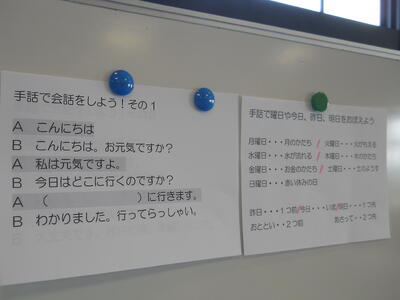 手話で会話をしよう！その１
A　こんにちは
B　こんにちは。お元気ですか？
A　私は元気ですよ。
B　今日はどこに行くのですか？
A　（　　　　　　　）に行きます。
B　わかりました。行ってらっしゃい。
手話で曜日や今日、昨日、明日をおぼえよう
月曜日・・・月のかたち / 火曜日・・・火がもえる
水曜日・・・水が流れる / 木曜日・・・木のかたち
金曜日・・・お金のかたち / 土曜日・・・土のようす
日曜日・・・赤い休みの日
昨日・・・１つ前/今日・・・いま/明日・・・１つ先
おととい・・２つ前　　あさって・・２つ先